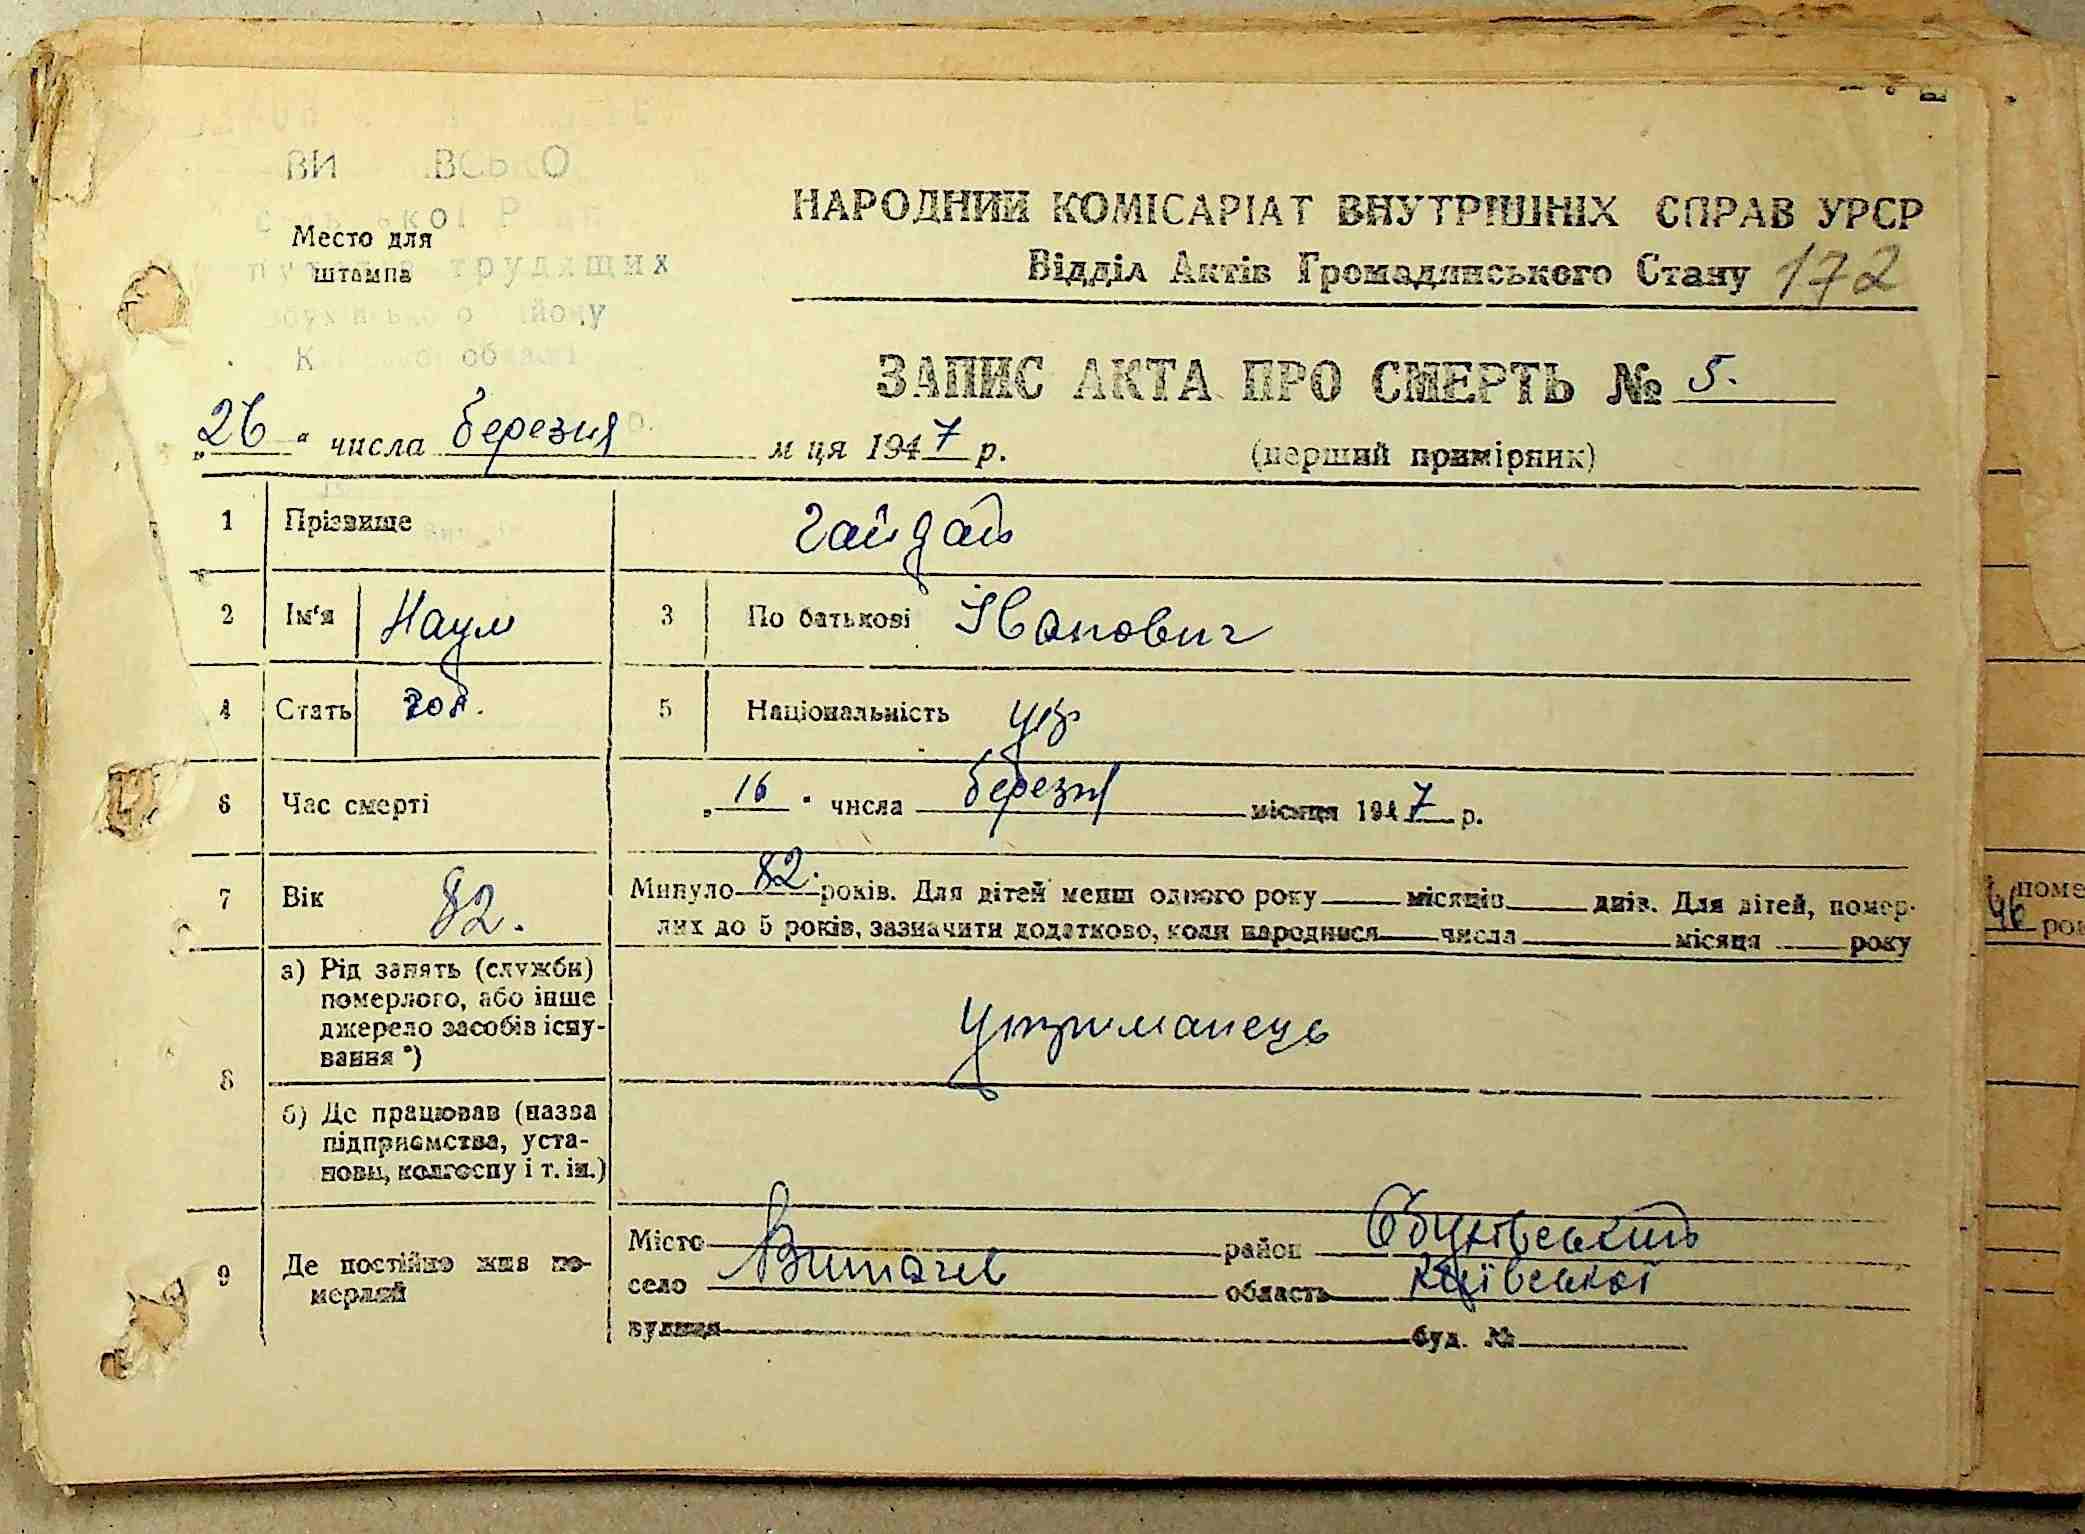 ВИ ВСЬКО
Место для
штампа
трудящих
області
НАРОДНИЙ КОМІСАРІАТ ВНУТРІШНІХ СПРАВ УРСР
Відділ Актів Громадянського Стану 172
ЗАПИС АКТА ПРО СМЕРТЬ № 5.
„26“ числа березня м ця 1947 р. (перший примірник)
1 Прізвище Гайдай
2 Ім'я Наум 3 По батькові Іванович
4 Стать чол. 5 Національність укр
6 Час смерті „16“ числа березня місяця 1947 р.
7 Вік 82. Минуло 82. років. Для дітей менш одного року місяців днів. Для дітей, помер-
лих до 5 років, зазначити додатково, коли народився числа місяця року
8 а) Рід занять (служби)
померлого, або інше
джерело засобів існу-
вання *)
Утриманець
б) Де працював (назва
підприємства, уста-
нови, колгоспу і т. ін.)
9 Де постійно жив по-
мерлий
Місто район Обухівський
село Витачев область Київської
вулиця буд. №
поме
46 рок